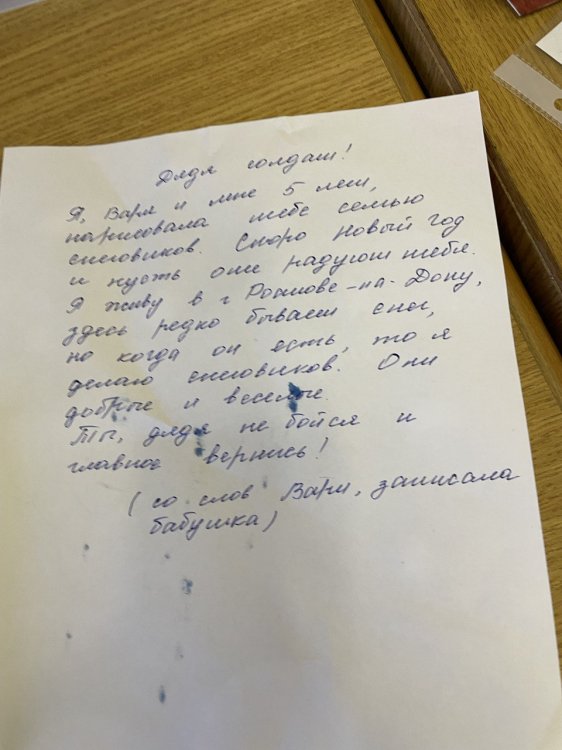 Дядя солдат!
Я, Варя и мне 5 лет,
нарисовала тебе семью
снеговиков. Скоро Новый год
и пусть они радуют тебя.
Я живу в г Ростове-на-Дону,
здесь редко бывает снег,
но когда он есть, то я
делаю снеговиков. Они
добрые и веселые.
Ты, дядя не бойся и
главное вернись!
(со слов Вари, записала
бабушка)